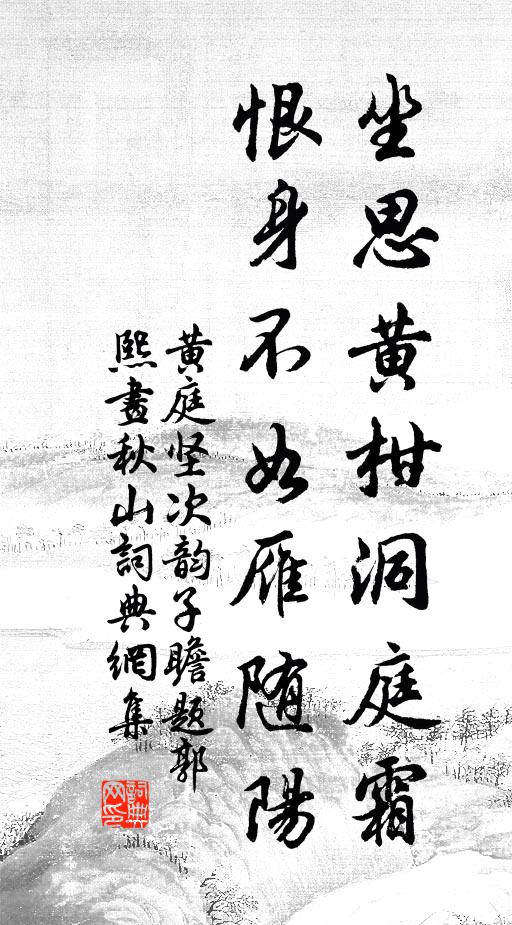 坐思黄柑洞庭霜
恨身不如雁随陽
黄庭坚次韵子瞻题郭
熙畫秋山詞典網集
詞典
网印